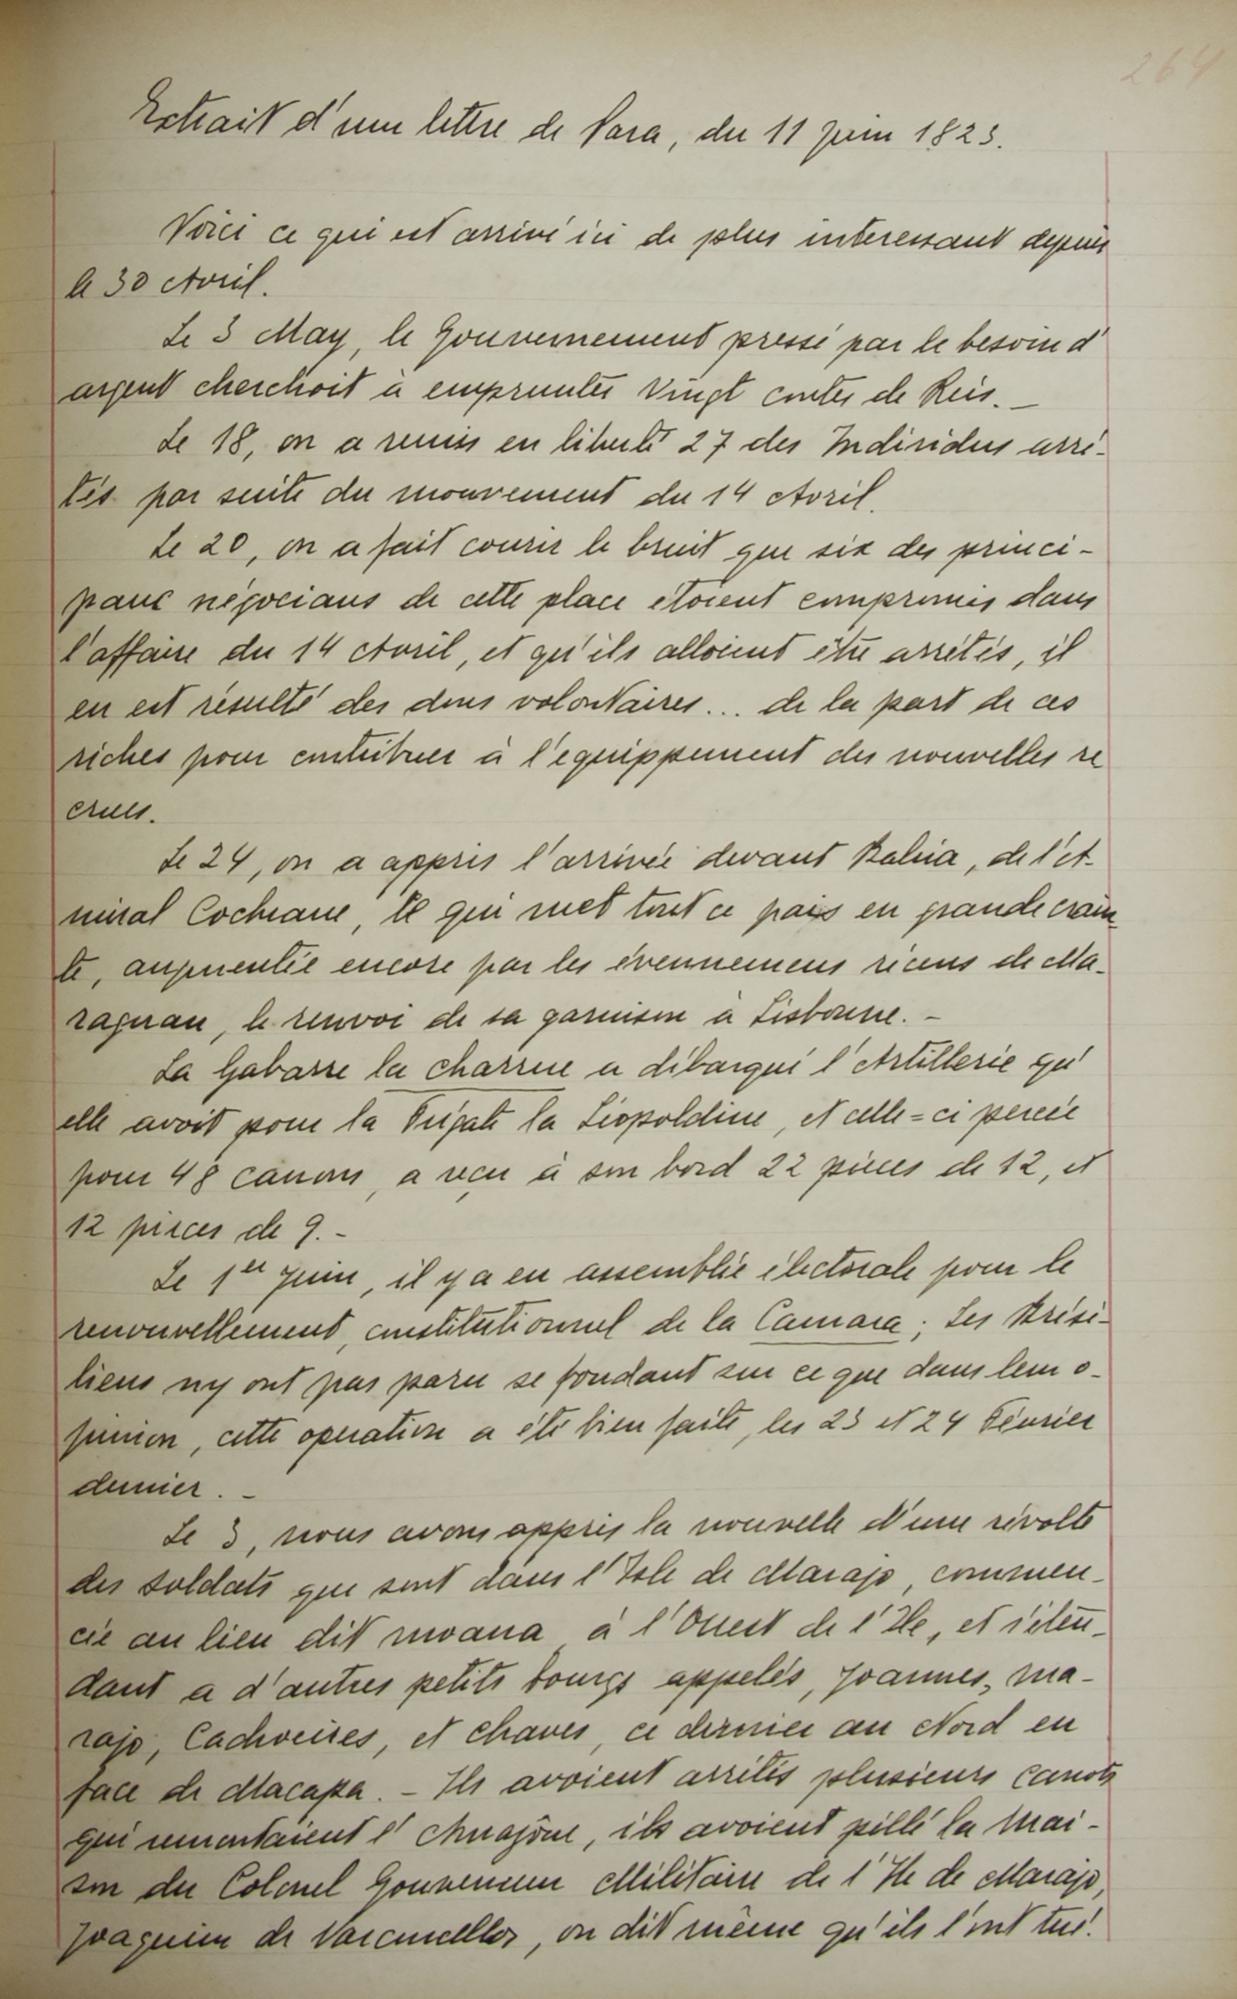 264
Extrait d'une lettre de Para, du 11 Juin 1823.
Voici ce qui est arrivé ici de plus interessant depuis
le 30 Avril.
Le 3 May, le Gouvernement pressé par le besoin d'
argent cherchoit à emprunter Vingt contes de Reis. _
Le 18, on a remis en liberté 27 des Individus arrê-
tés par suite du mouvement du 14 Avril.
Le 20, on a fait courir le bruit que six des princi-
paux négocians de cette place étoient compromis dans
l'affaire du 14 Avril, et qu'ils alloient être arrêtés, il
en est résulté des dons volontaires... de la part de ces
riches pour contribuer à l'equippement des nouvelles re
crues.
Le 24, on a appris l'arrivée devant Bahia, de l'A-
miral Cochrane, ce qui met tout ce païs en grande crain_
te, augmentée encore par les évennemens récens de Ma-
ragnan, le renvoi de sa garnison à Lisbonne. -
La Gabarre la charrue a débarqué l'Artillerie qu'
elle avoit pour la Frégate la Léopoldine, et celle=ci percée
pour 48 canons, a reçu à son bord 22 pièces de 12, et
12 pièces de 9. -
Le 1er Juin, il y a eu assemblée électorale pour le
renouvellement, constitutionnel de la Camara; Les Brési-
liens n'y ont pas paru se fondant sur ce que dans leur o-
pinion, cette operation a été bien faite, les 23 et 24 Février
dernier. _
Le 3, nous avons appris la nouvelle d'une révolte
des soldats que sont dans l'Isle de Marajo, commen_
cée au lieu dit moana à l'Ouest de l'Ile, et s'éten_
dant a d'autres petits bourgs appelés, Joannes, ma-
rajo, Cachoeires, et Chaves, ce dernier au Nord en
face de Macapa. - Ils avoient arrêtés plusieurs canots
qui remontaient l'Amazône, ils avoient pillé la mai-
son du Colonel Gouverneur Militaire de l'Ile de Marajo,
Joaquim de Vasconcellos, on dit même qu'ils l'ont tué.